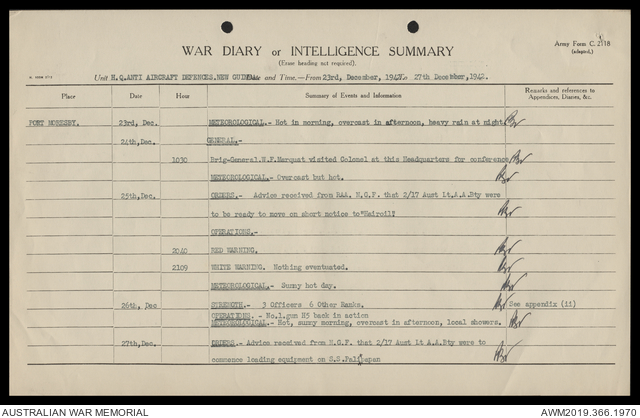 Army Form C. 2118
(adapted.)
WAR DIARY or INTELLIGENCE SUMMARY
(Erase heading not required).
Unit H.Q.ANTI AIRCRAFT DEFENCES.NEW GUINEA. Date and Time.—From 23rd, December, 1942 To 27th December, 1942.
Place Date Hour Summary of Events and Information Remarks and references to Appendices, Diaries, &c.
PORT MORESBY. 23rd, Dec. METEOROLOGICAL.- Hot in morning, overcast in afternoon, heavy rain at night
24th,Dec. GENERAL.-
1030 Brig-General.W.F.Marquat visited Colonel at this Headquarters for conference
METEOROLOGICAL.- Overcast but hot.
25th,Dec. ORDERS.- Advice received from RAA. N.G.F. that 2/17 Aust Lt.A.A.Bty were
to be ready to move on short notice to "Hairoil"
OPERATIONS.-
2040 RED WARNING.
2109 WHITE WARNING. Nothing eventuated.
METEOROLOGICAL.- Sunny hot day.
26th, Dec STRENGTH.- 3 Officers 6 Other Ranks. See appendix (ii)
OPERATIONS. - No.1.gun H5 back in action
METEOROLOGICAL.- Hot, sunny morning, overcast in afternoon, local showers.
27th,Dec. ORDERS.- Advice received from N.G.F. that 2/17 Aust Lt A.A.Bty were to
commence loading equipment on S.S.Balikpapan
AUSTRALIAN WAR MEMORIAL AWM2019.366.1970